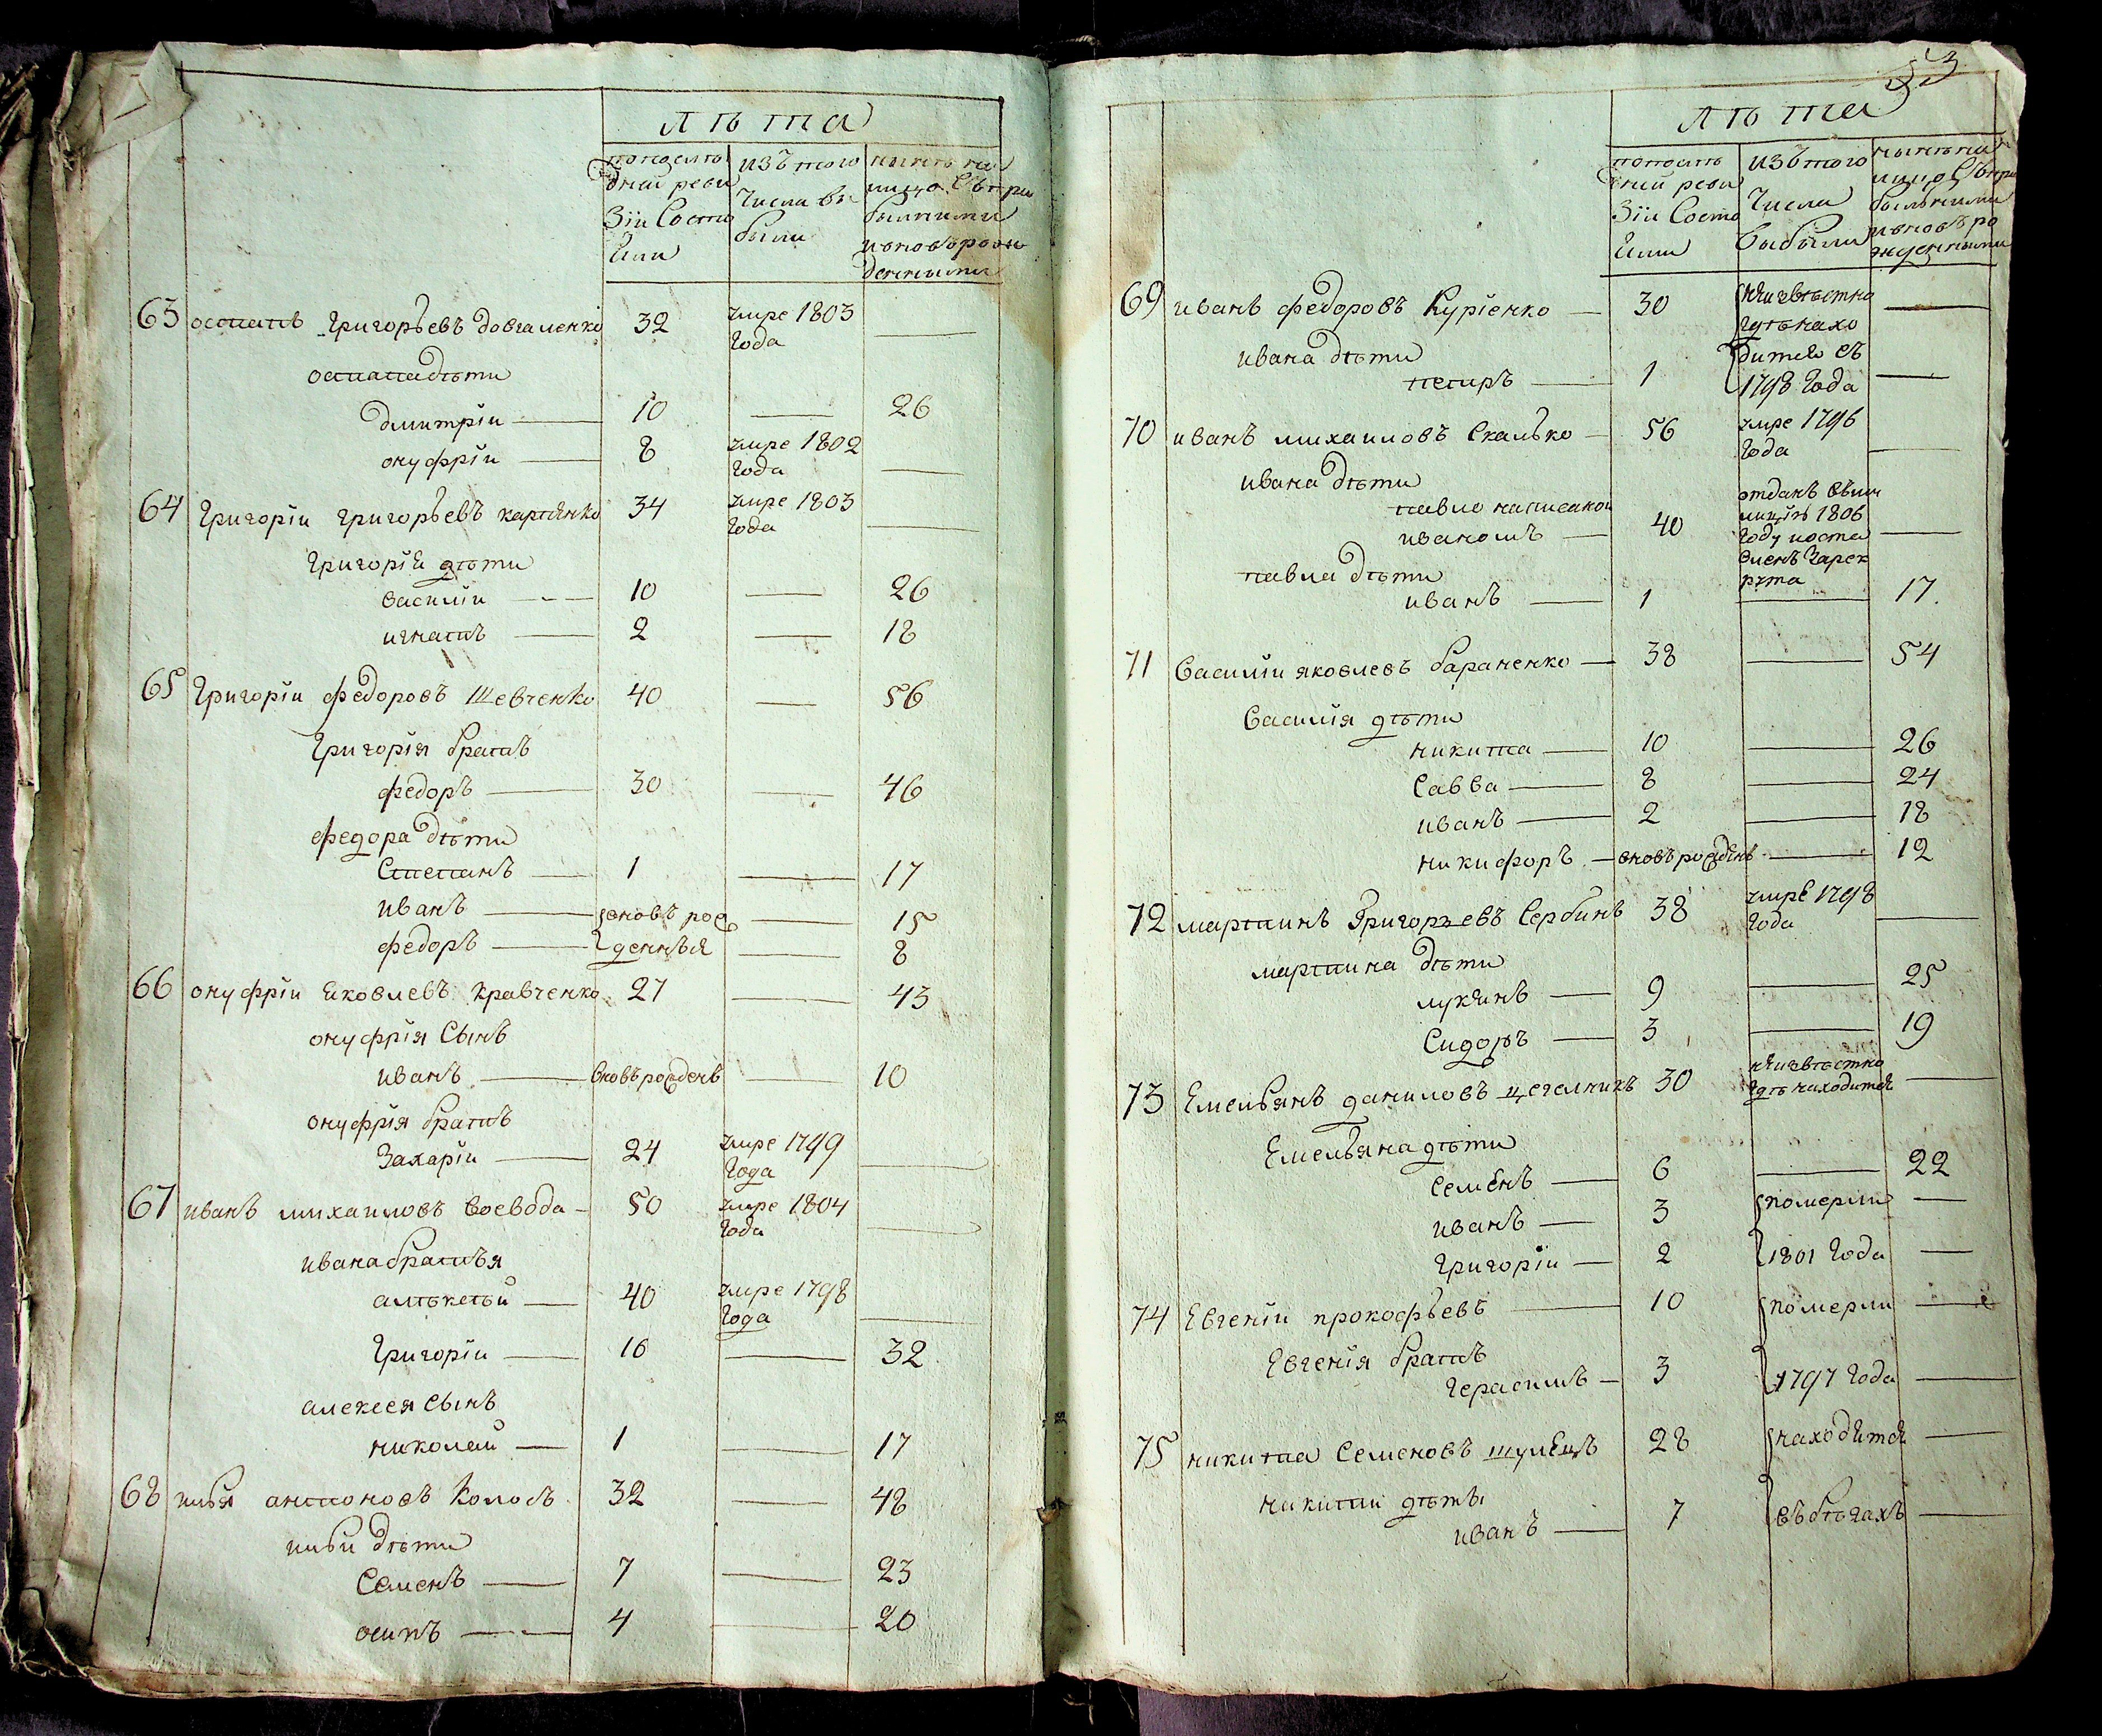 лѣта
последней реви
зіи Состо
яли
изъ того
Числа вы
были
нынѣ на
лицо Съ при
былыми
и вновь рож
денными
63 остапъ Григорьевъ довгаленко 32 умре 1803
Года —
остапа дѣти
дмитріи — 10 — 26
онуфріи — 8 умре 1802
Года —
64 Григоріи григорьевъ 34 умре 1803
Года —
Григорія дѣти
василіи — 10 — 26
игнатъ — 2 — 18
65 Григоріи федоровъ Шевченко 40 — 56
Григорія братъ
федоръ — 30 — 46
федора дѣти
Степанъ — 1 — 17
иванъ — вновь рож — 15
федоръ — денныя — 8
66 онуфріи яковлевъ кравченко 27 — 43
онуфрія Сынъ
иванъ — вновь рожденъ — 10
онуфрія братъ
Захаріи — 24 умре 1799
Года —
67 иванъ михаиловъ воевода — 50 умре 1804
Года —
ивана братья
алѣксѣй — 40 умре 1798
Года —
Григоріи — 16 — 32
алексея Сынъ
николай — 1 — 17
68 илья антоновъ Колосъ 32 — 48
ильи дѣти
Семенъ — 7 — 23
осипъ — 4 — 20
53
лѣта
последней реви
зіи Состо
яли
изъ того
Числа
выбыли
нынѣ на
лицо Съ при
былыми
и вновь ро
жденными
69 иванъ федоровъ Куріенко — 30 неизвѣстно —
гдѣ нахо
ивана дѣти
дится съ
петръ — 1 1798 Года —
70 иванъ михаиловъ Скалько — 56 умре 1796
Года —
ивана дѣти
павло написанои
иваномъ — 40 отданъ въ ми
лицію 1806
Году и оста
вленъ Зарек
рута —
павла дѣти
иванъ — 1 — 17
71 василіи яковлевъ бараненко — 38 — 54
василія дѣти
никита — 10 — 26
Савва — 8 — 24
иванъ — 2 — 18
никифоръ — вновь рожденъ — 12
72 мартинъ Григорьевъ Сербинъ 38 умре 1798
Года —
мартина дѣти
лукянъ — 9 — 25
Сидоръ — 3 — 19
73 Емельянъ даниловъ цегелникъ 30 неизвѣстно
гдѣ находится —
Емельяна дѣти
семенъ — 6 — 22
иванъ — 3 померли —
григоріи — 2 1801 Года —
74 Евгеніи прокофьевъ — 10 померли —
Евгенія братъ
Герасимъ — 3 1797 Года —
75 никита Семеновъ 28 находятся —
никиты дѣти
иванъ — 7 въ бѣгахъ —